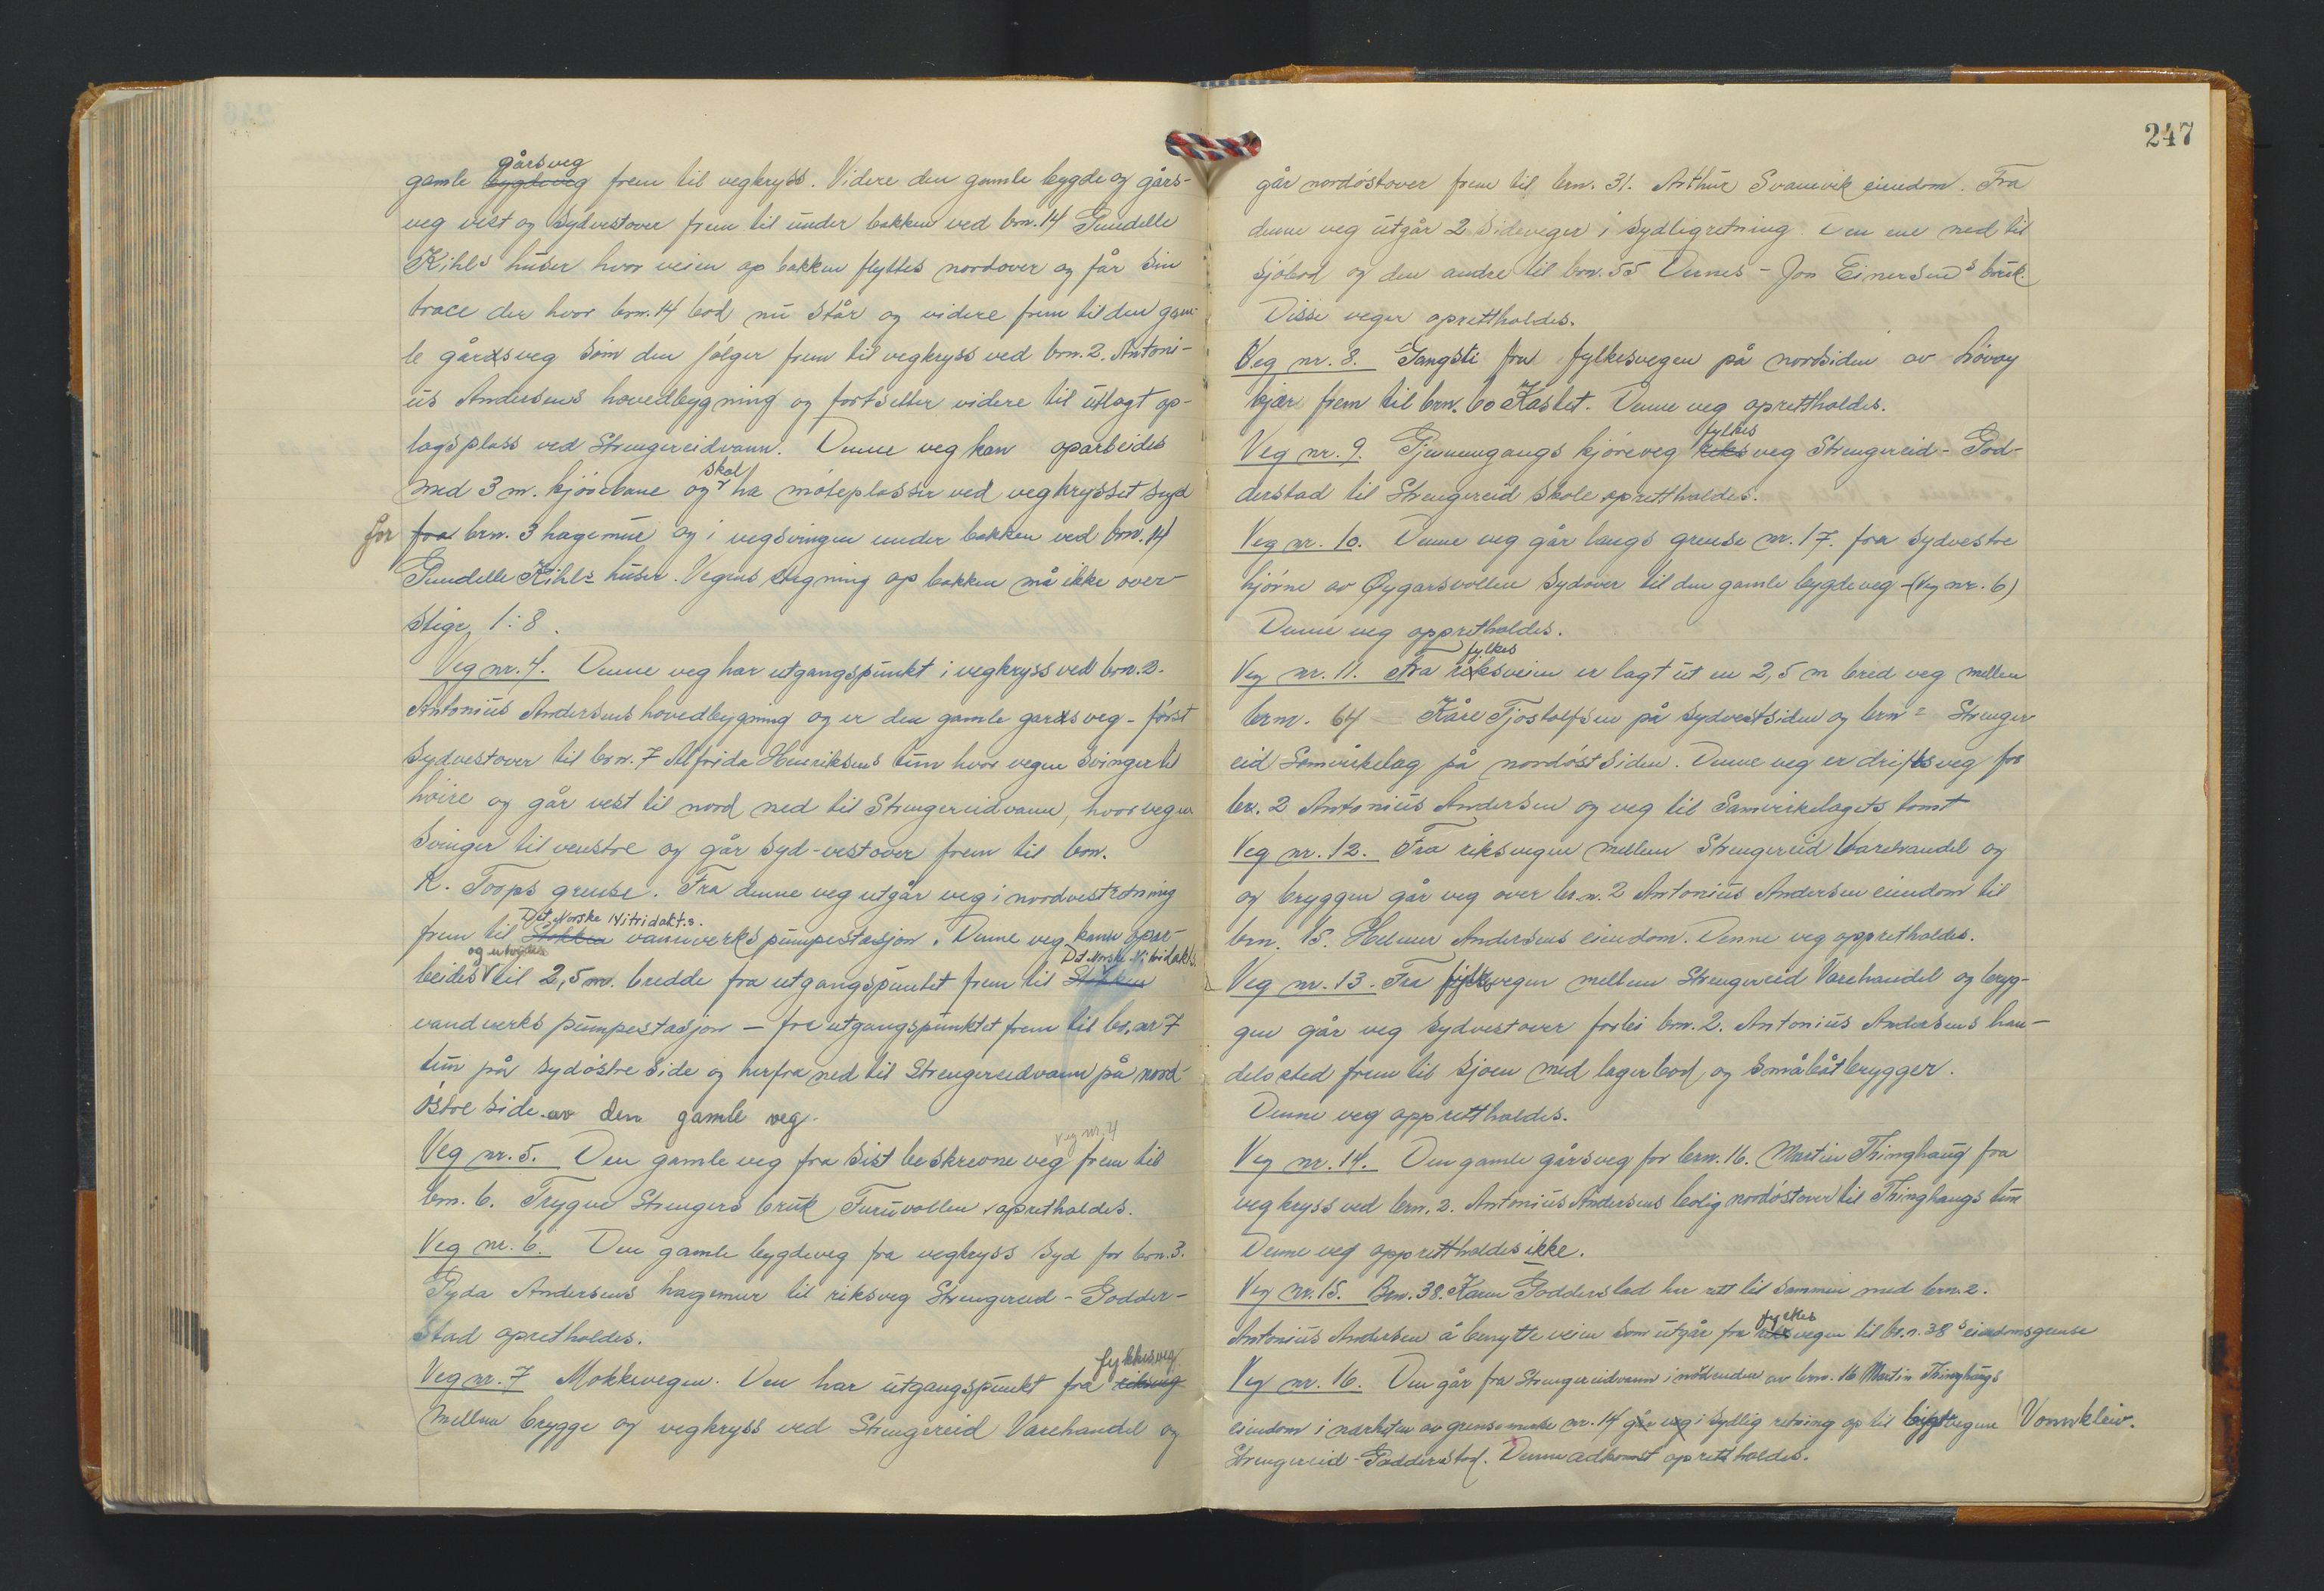 gårsveg
gamle bygdeveg frem til vegkryss. Videre den gamle bygde og gårs-
veg vest og sydvestover frem til under bakken ved brn. 14 Gundelle
Kihls huser hvor veien op bakken flyttes nordover og får sin
trace der hvor brn. 14 bod nu står og videre frem til den gam-
le gårdsveg som den følger frem til vegkryss ved brn. 2. Antoni-
us Andersens hovedbygning og fortsetter videre til utlagt op-
lagsplass ved Strengereidvann. Denne veg kan oparbeides
skal
med 3 m. kjørebane og ha møteplasser ved vegkrysset syd
for fra brn. 3 hagemur og i vegsvingen under bakken ved brn. 14
Gundelle Kihls huser. Vegens stegning op bakken må ikke over-
stige 1:8.
Veg nr. 4. Denne veg har utgangspunkt i vegkryss ved brn. 2.
Antonius Andersens hovedbygning og er den gamle gardsveg - først
sydvestover til brn. 7 Alfrida Henriksens tun hvor vegen svinger til
høire og går vest til nord ned til Strengereidvann, hvor vegen
svinger til venstre og går syd-vestover frem til brn.
K. Toops grense. Fra denne veg utgår veg i nordvestretning
Det Norske Nitridakt.s.
frem til Stokken vannverks pumpestasjon. Denne veg kann opar-
og utvides Det Norske Nitridakts.
beides til 2,5 m. bredde fra utgangspuntet frem til Stokken
vandverks pumpestasjon - fra utgangspunktet frem til br. nr 7
tun på sydøstre side og herfra ned til Strengereidvann på nord-
østre side av den gamle veg.
Veg nr. 4
Veg nr. 5. Den gamle veg fra sist beskrevne veg frem til
brn. 6. Trygve Strengers bruk Furuvollen, opretholdes.
Veg nr. 6. Den gamle bygdeveg fra vegkryss syd for brn. 3.
Gyda Andersens hagemur til riksveg Strengereid - Godder-
stad opretholdes.
fylkesveg
Veg nr. 7 Mokkevegen. Den har utgangspunkt fra riksveg
mellem brygge og vegkryss ved Strengereid Varehandel og
247
går nordøstover frem til brn. 31. Arthur Svanevik eiendom. Fra
denne veg utgår 2 sideveger i sydligretning. Den ene ned til
sjøbod og den andre til brn. 55 Dernes - Jon Einersens bruk.
Disse veger oprettholdes.
Veg nr. 8. Gangsti fra fylkesvegen på nordsiden av Løvøy
kjær frem til brn. 60 Kastet. Denne veg oprettholdes.
fylkes
Veg nr. 9. Gjennemgangs kjøreveg riks veg Strengereid - God-
derstad til Strengereid skole oprettholdes.
Veg nr. 10. Denne veg går langs grense nr. 17. fra sydvestre
hjørne av Øygarsvollen sydover til den gamle bygdeveg - (Veg nr. 6)
Denne veg oppretholdes.
fylkes
Veg nr. 11. Fra riksveien er lagt ut en 2,5 m bred veg mellem
brnr. 64 Kåre Tjostolfsen på sydvestsiden og brn = Strenger
eid Samvirkelag på nordøst siden. Denne veg er driftsveg for
br. 2 Antonius Andersen og veg til Samvirkelagets tomt
Veg nr. 12. Fra riksvegen mellem Strengereid Varehandel og
og bryggen går veg over br. n. 2 Antonius Andersen eiendom til
brn. 15. Helmer Andersens eiendom. Denne veg oppretholdes.
Veg nr. 13. Fra fylkesvegen mellem Strengereid Varehandel og bryg-
gen går veg sydvestover forbi brn. 2. Antonius Andersens han-
delssted frem til sjøen med lagerbod og småbåtbrygger.
Denne veg opprettholdes.
Veg nr. 14. Den gamle gårsveg for brn. 16. Martin Thinghaug fra
vegkryss ved brn. 2. Antonius Andersens bolig nordøstover til Thinghaugs tun
Denne veg opprettholdes ikke.
Veg nr. 15. Brn. 38. Karen Godderstad har rett til sammen med brn. 2.
fylkes
Antonius Andersen å benytte veien som utgår fra riksvegen til br. n. 38s eiendomsgrense
Veg nr. 16. Den går fra Strengereidvann i nordenden av brn. 16 Martin Thinghaugs
eiendom i nærheten av grensemerke nr. 14 går veg i sydlig retning op til vegene Vonnkleiv.
Strengereid - Godderstad. Denne adkomst oprettholdes.